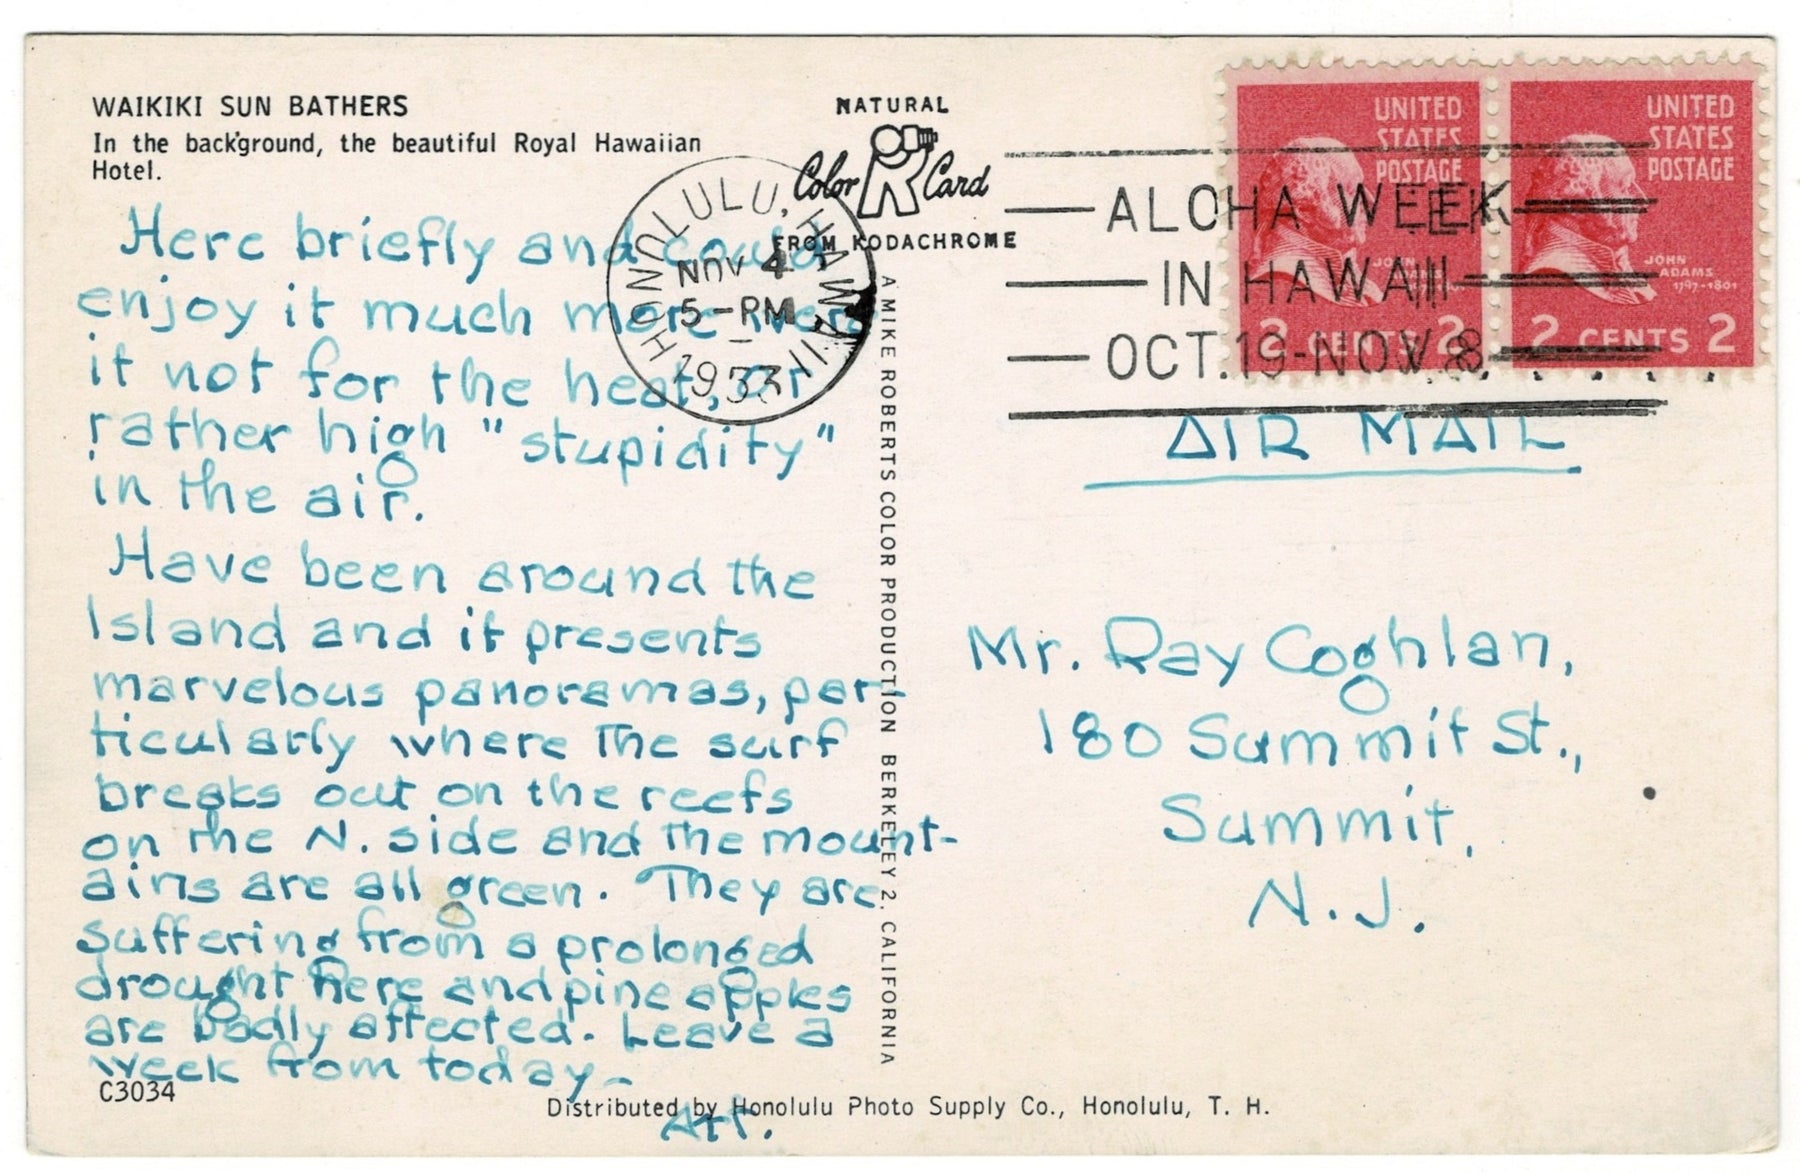 WAIKIKI SUN BATHERS
In the background, the beautiful Royal Hawaiian
Hotel.
NATURAL
Color Card
FROM KODACHROME
HONOLULU, HAWAII
NOV 4
5-PM
1953
ALOHA WEEK
IN HAWAII
OCT. 19-NOV. 8
UNITED
STATES
POSTAGE
JOHN
ADAMS
2 CENTS 2
UNITED
STATES
POSTAGE
JOHN
ADAMS
1797-1801
2 CENTS 2
Here briefly and could
enjoy it much more were
it not for the heat, or
rather high "stupidity"
in the air.
Have been around the
Island and it presents
marvelous panoramas, par-
ticularly where the surf
breaks out on the reefs
on the N. side and the mount-
ains are all green. They are
suffering from a prolonged
drought here and pineapples
are badly affected. Leave a
week from today-
Art.
A MIKE ROBERTS COLOR PRODUCTION BERKELEY 2, CALIFORNIA
AIR MAIL
Mr. Ray Coghlan,
180 Summit St.,
Summit,
N.J.
C3034
Distributed by Honolulu Photo Supply Co., Honolulu, T. H.